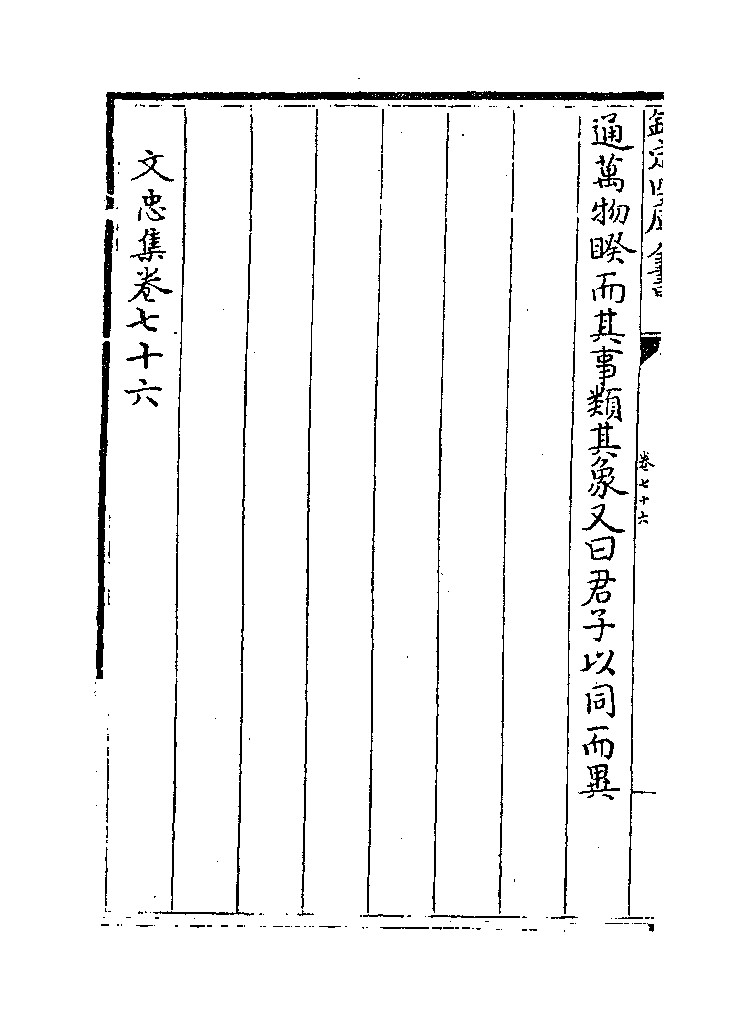 欽定四庫全書
卷七十六
通萬物睽而其事類其象又曰君子以同而異
文忠集卷七十六